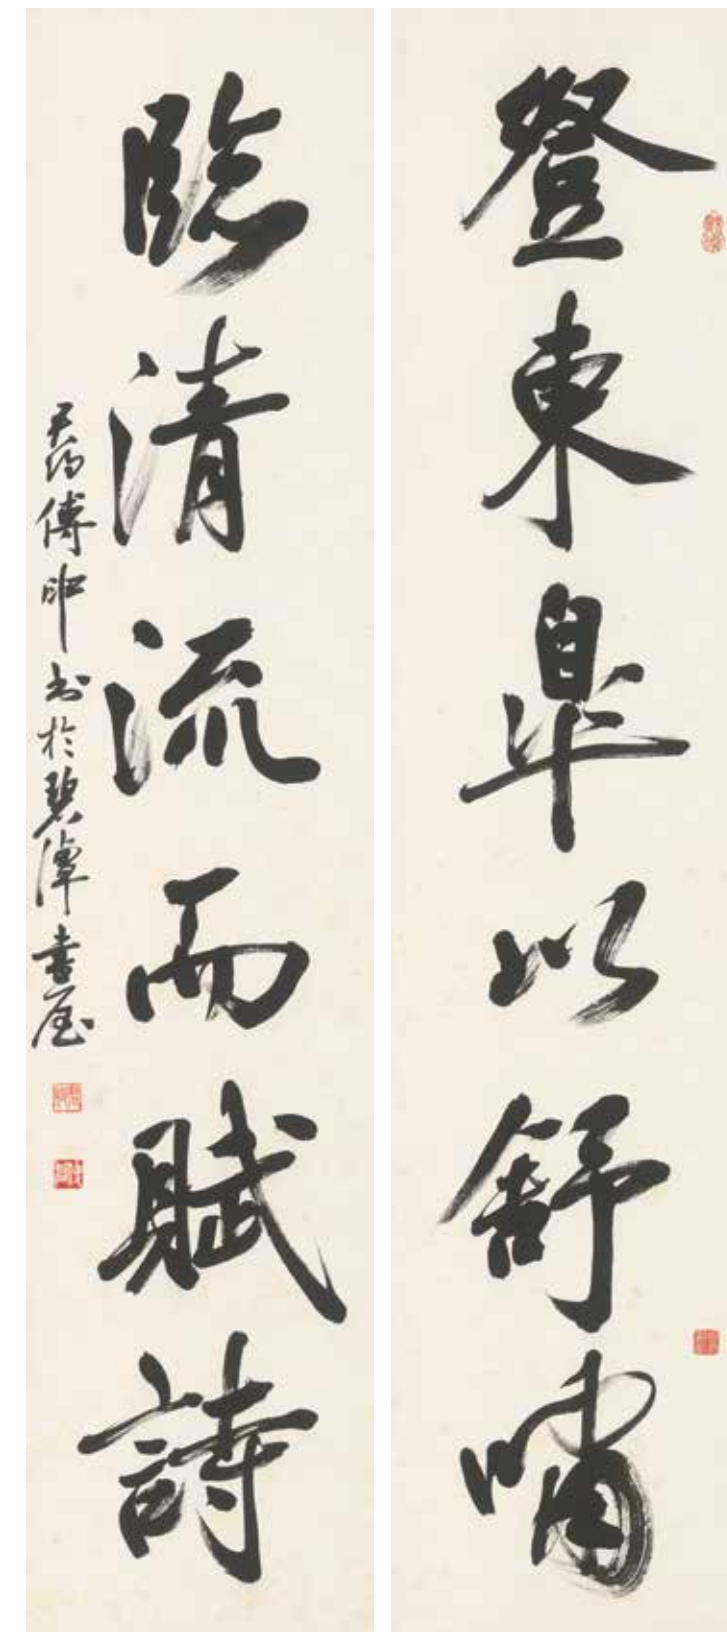 登東皋以舒嘯
臨清流而賦詩
君約傅申書於碧潭書屋